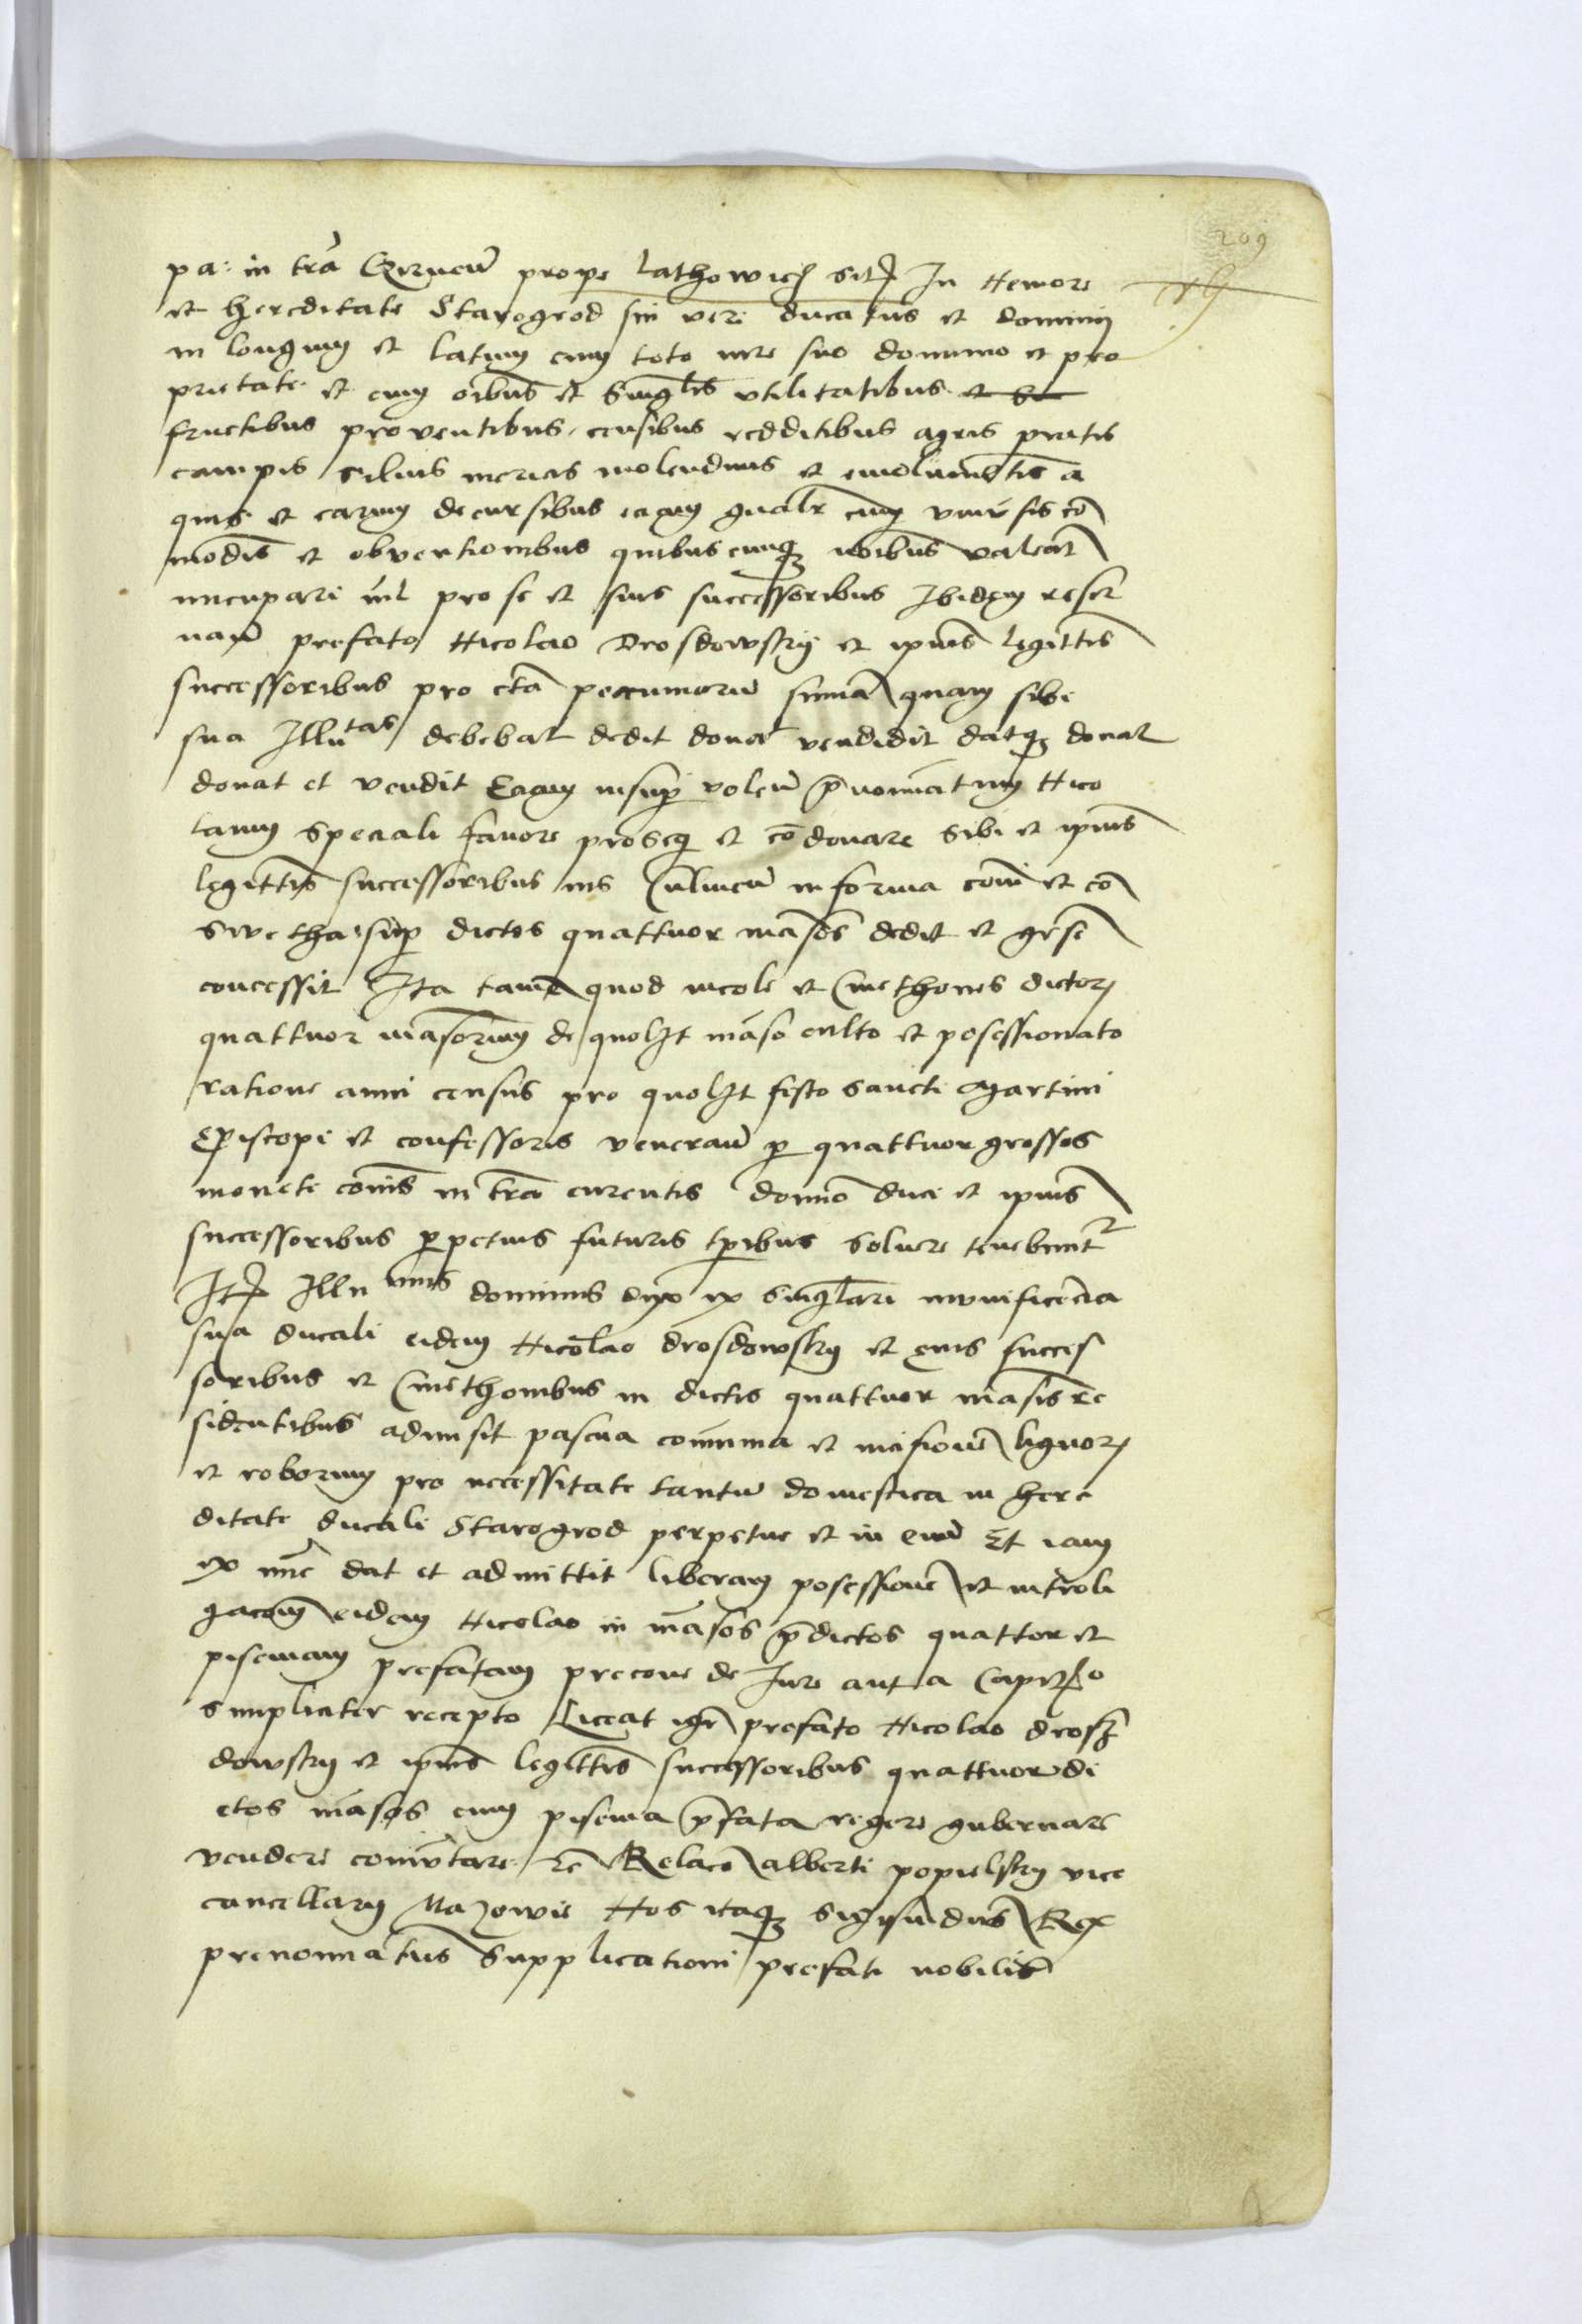 209
pa: in tra Czirneñ prope Lathowicz sitẽ In Nemore
et hereditate Starogrod sui veri ducatus et dominij
in longum et latum cum toto iure suo dominio et pro
prietate et cum oibus et singlis vtilitatibus et
fructibus proventibus censibus redditibus agris pratis
campis siluis mericis molendinis et emolumētis a
quis et earum decursibus eciam gnalr cum vniuersis cō
modis et obventionibus quibuscunqz noibus valeant
nuncupari nil pro se et suis successoribus Ibidem reser
uañ prefato Nicolao Drosdowsky et ipius legittis
successoribus pro cta pecuniarũ summa quam sibi
sua Illutas debebat dedit donat vendidit datqz donat
donat et vendit Eciam insup voleñ p̃nominatum Nico
laum speciali favore proseq et cōdonare sibi et ipius
legittis successoribus ius Culmeñ in forma coñi et co
swetha sup dictos quattuor mãsos dedit et grse
concessit Ita tamẽ quod incole et Cmethones dictorꝫ
quattuor mãsorum de quolꝫt mãso culto et posessionato
ratione anni census pro quolꝫt festo sancti Martini
Episcopi et confessoris venerañ p quattuor grossos
monete cois in tra curentis domino duci et ipius
successoribus ppetuis futuris tpribus solvere tenebuntr
Itẽ Illu mus dominus dux ex singlari munificencia
sua ducali eidem Nicolao drosdowsky et eius succes
soribus et Cmethonibus in dictis quattuor mãsis re
sidentibus admisit pascua communia et incisionẽ lignorꝫ
et roborum pro necessitate tantũ domestica in here
ditate ducali Starogrod perpetue et in euũ Et iam
ex nũc dat et admittit liberam posessionẽ et introli
gacom̃ eidem Nicolao in mãsos p̃dictos quattor et
piscinam prefatam precone de Iure aut a Capitꝫo
simpliciter recepto Liceat igr prefato Nicolao drosz
dowsky et ipius legittis successoribus quattuor di
ctos mãsos cum piscina p̃fata regere gubernare
vendere comũtare rc̃ Relacio alberti popielsky vice
cancellarij Mazowie Nos itaqz Sigismũdus Rex
prenominatus Supplicationi prefati nobilis